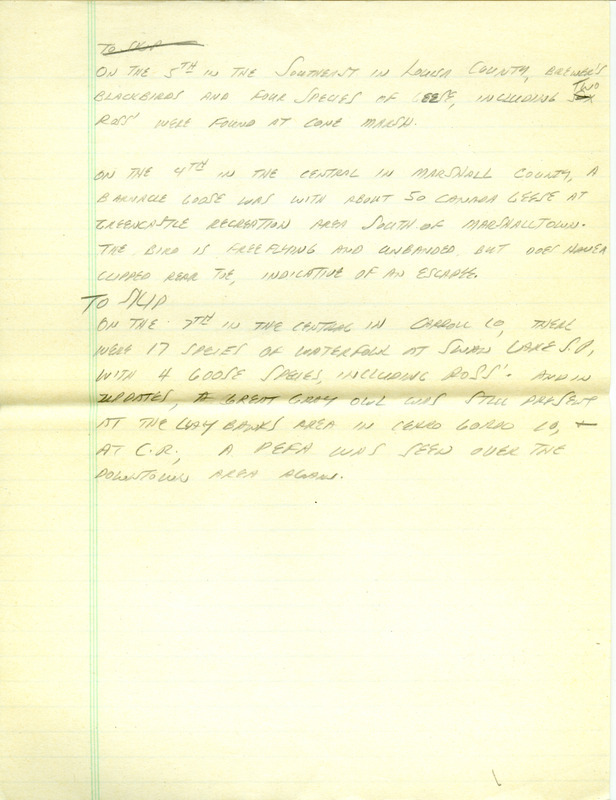 To Skip
ON THE 5TH IN THE SOUTHEAST IN LOUISA COUNTY, BREWER'S
BLACKBIRDS AND FOUR SPECIES OF GEESE, INCLUDING TWO
ROSS' WERE FOUND AT CONE MARSH.
ON THE 4TH IN THE CENTRAL IN MARSHALL COUNTY, A
BARNACLE GOOSE WAS WITH ABOUT 50 CANADA GEESE AT
GREENCASTLE RECREATION AREA SOUTH OF MARSHALLTOWN.
THE BIRD IS FREEFLYING AND UNBANDED BUT DOES HAVE A
CLIPPED REAR TOE, INDICATIVE OF AN ESCAPEE.
TO SKIP
ON THE 7TH IN THE CENTRAL IN CARROLL CO, THERE
WERE 17 SPECIES OF WATERFOWL AT SWAN LAKE S.P.
WITH 4 GOOSE SPECIES, INCLUDING ROSS'. AND IN
UPDATES, A GREAT GRAY OWL WAS STILL PRESENT
AT THE BANKS AREA IN CERRO GORDO CO,
AT C.R., A PEFA WAS SEEN OVER THE
DOWNTOWN AREA AGAIN.